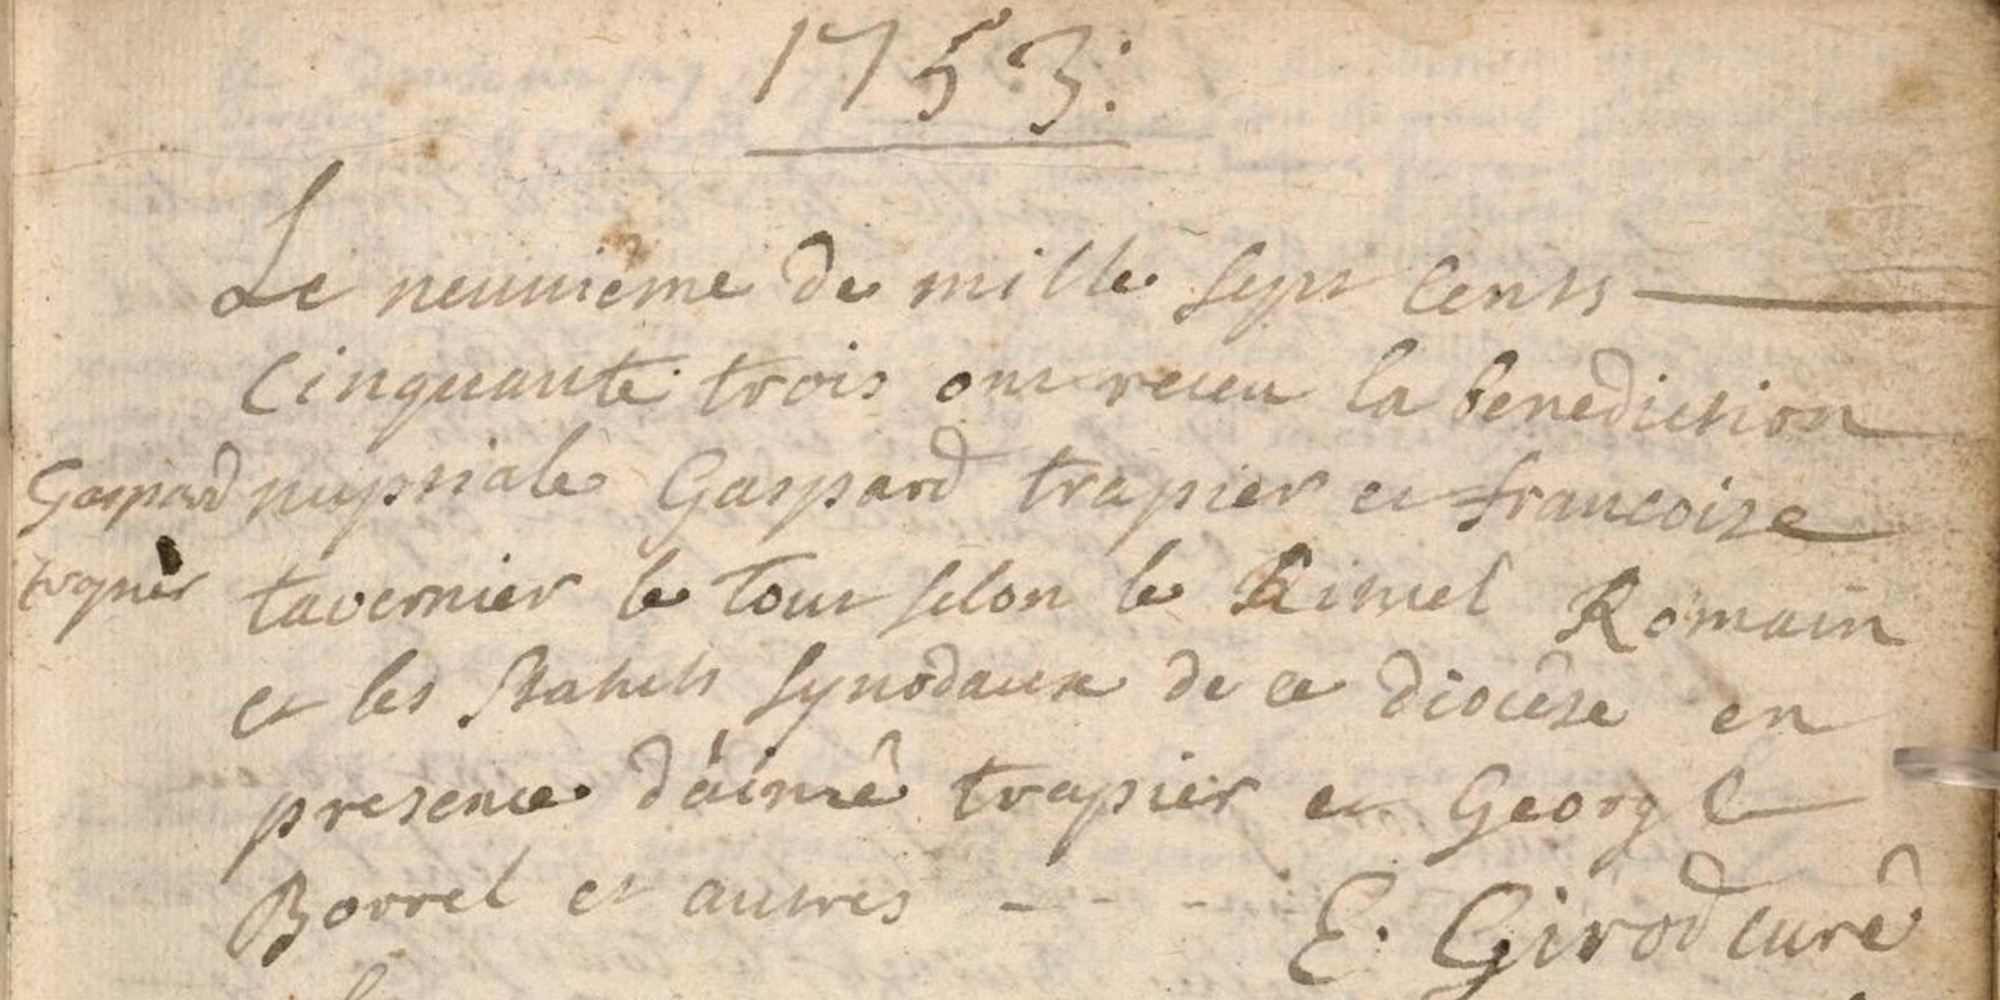 1753:
Le neuuiême de mille sept cents
cinquante trois ont receu la benediction
Gaspard nuptiale Gaspard trapier et francoise
trapier tavernier le tout selon le Rituel Romain
et les statuts synodaux de ce diocêse en
presence d'aimê trapier et George
Borrel et autres - - - E. Girod curê